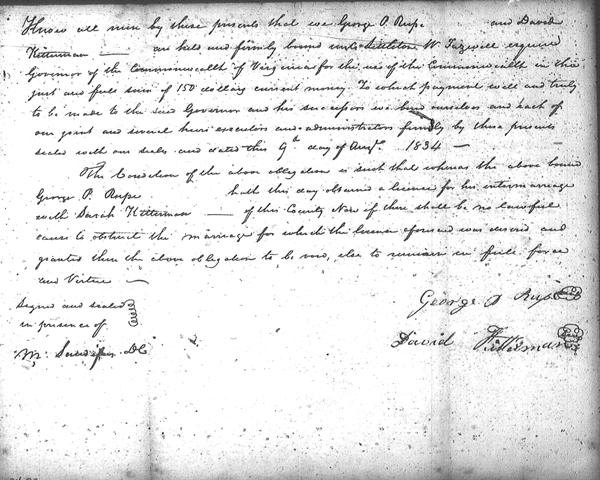 Know all men by these presents that we George P. Rupe and David
Kitterman are held and firmly bound unto Littleton W. Tazewell esquire
Governor of the Commonwealth of Virginia for the use of the Commonwealth in the
just and full sum of 150 dollars current money. To which payment well and truly
to be made to the said Governor and his successors we bind ourselves and each of
our joint and several heirs executors and administrators firmly by these presents
sealed with our seals and dated this 9th day of Augt. 1834 —
The Condition of the above obligation is such that whereas the above bound
George P. Rupe hath this day obtained a license for his intermarriage
with Sarah Kitterman — of this County Now if there shall be no lawful
cause to obstruct the marriage for which the license aforesaid was desired and
granted then the above obligation to be void, else to remain in full force
and Virtue —
Signed and sealed
in presence of
George P Rupe
David Kitterman
DC